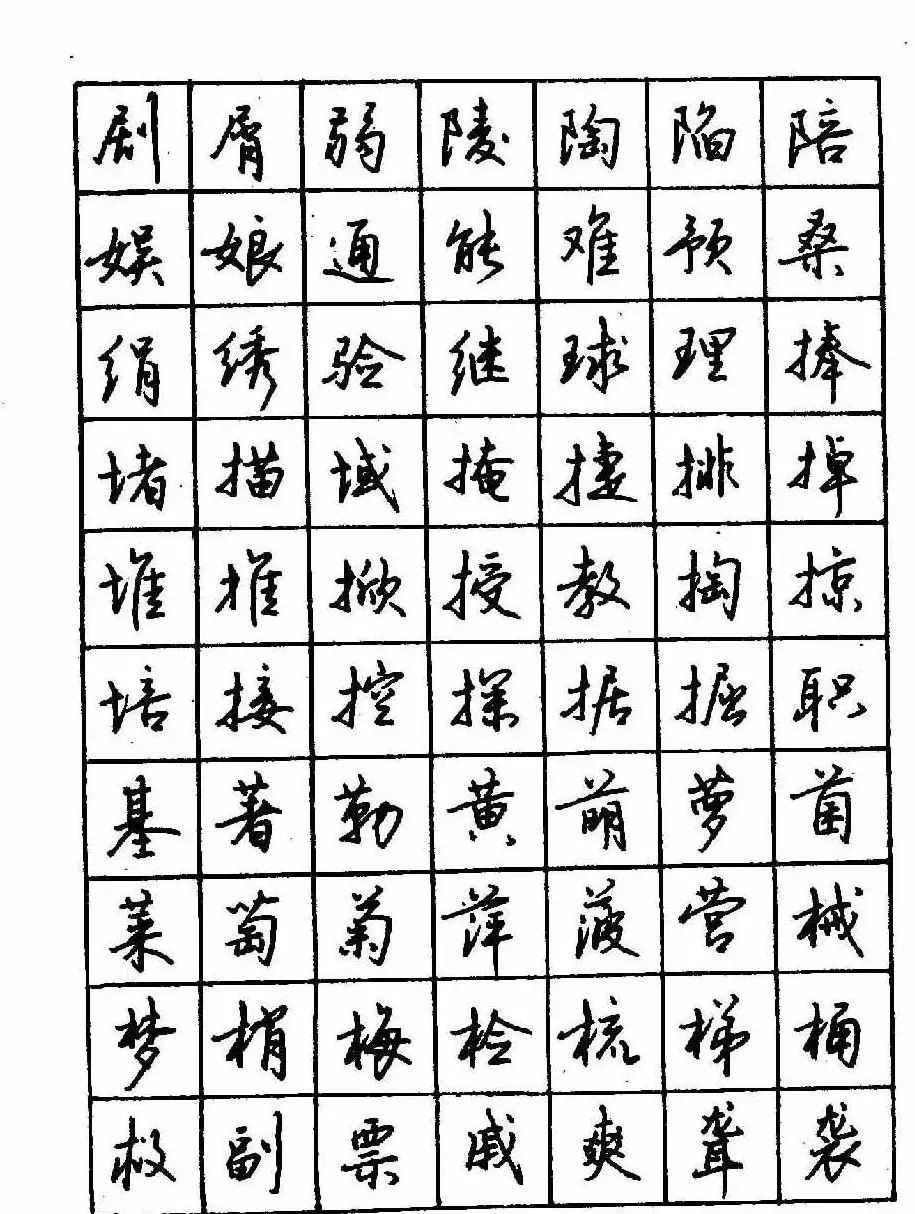 剧屑弱陵陶陷陪
娱娘通能难预桑
绢绣验继球理捧
堵描域掩捷排掉
堆推掀授教掏掠
培接控探据掘职
基著勒黄萌萝菌
菜萄菊萍菠营械
梦梢梅检梳梯桶
救副票戚爽聋袭